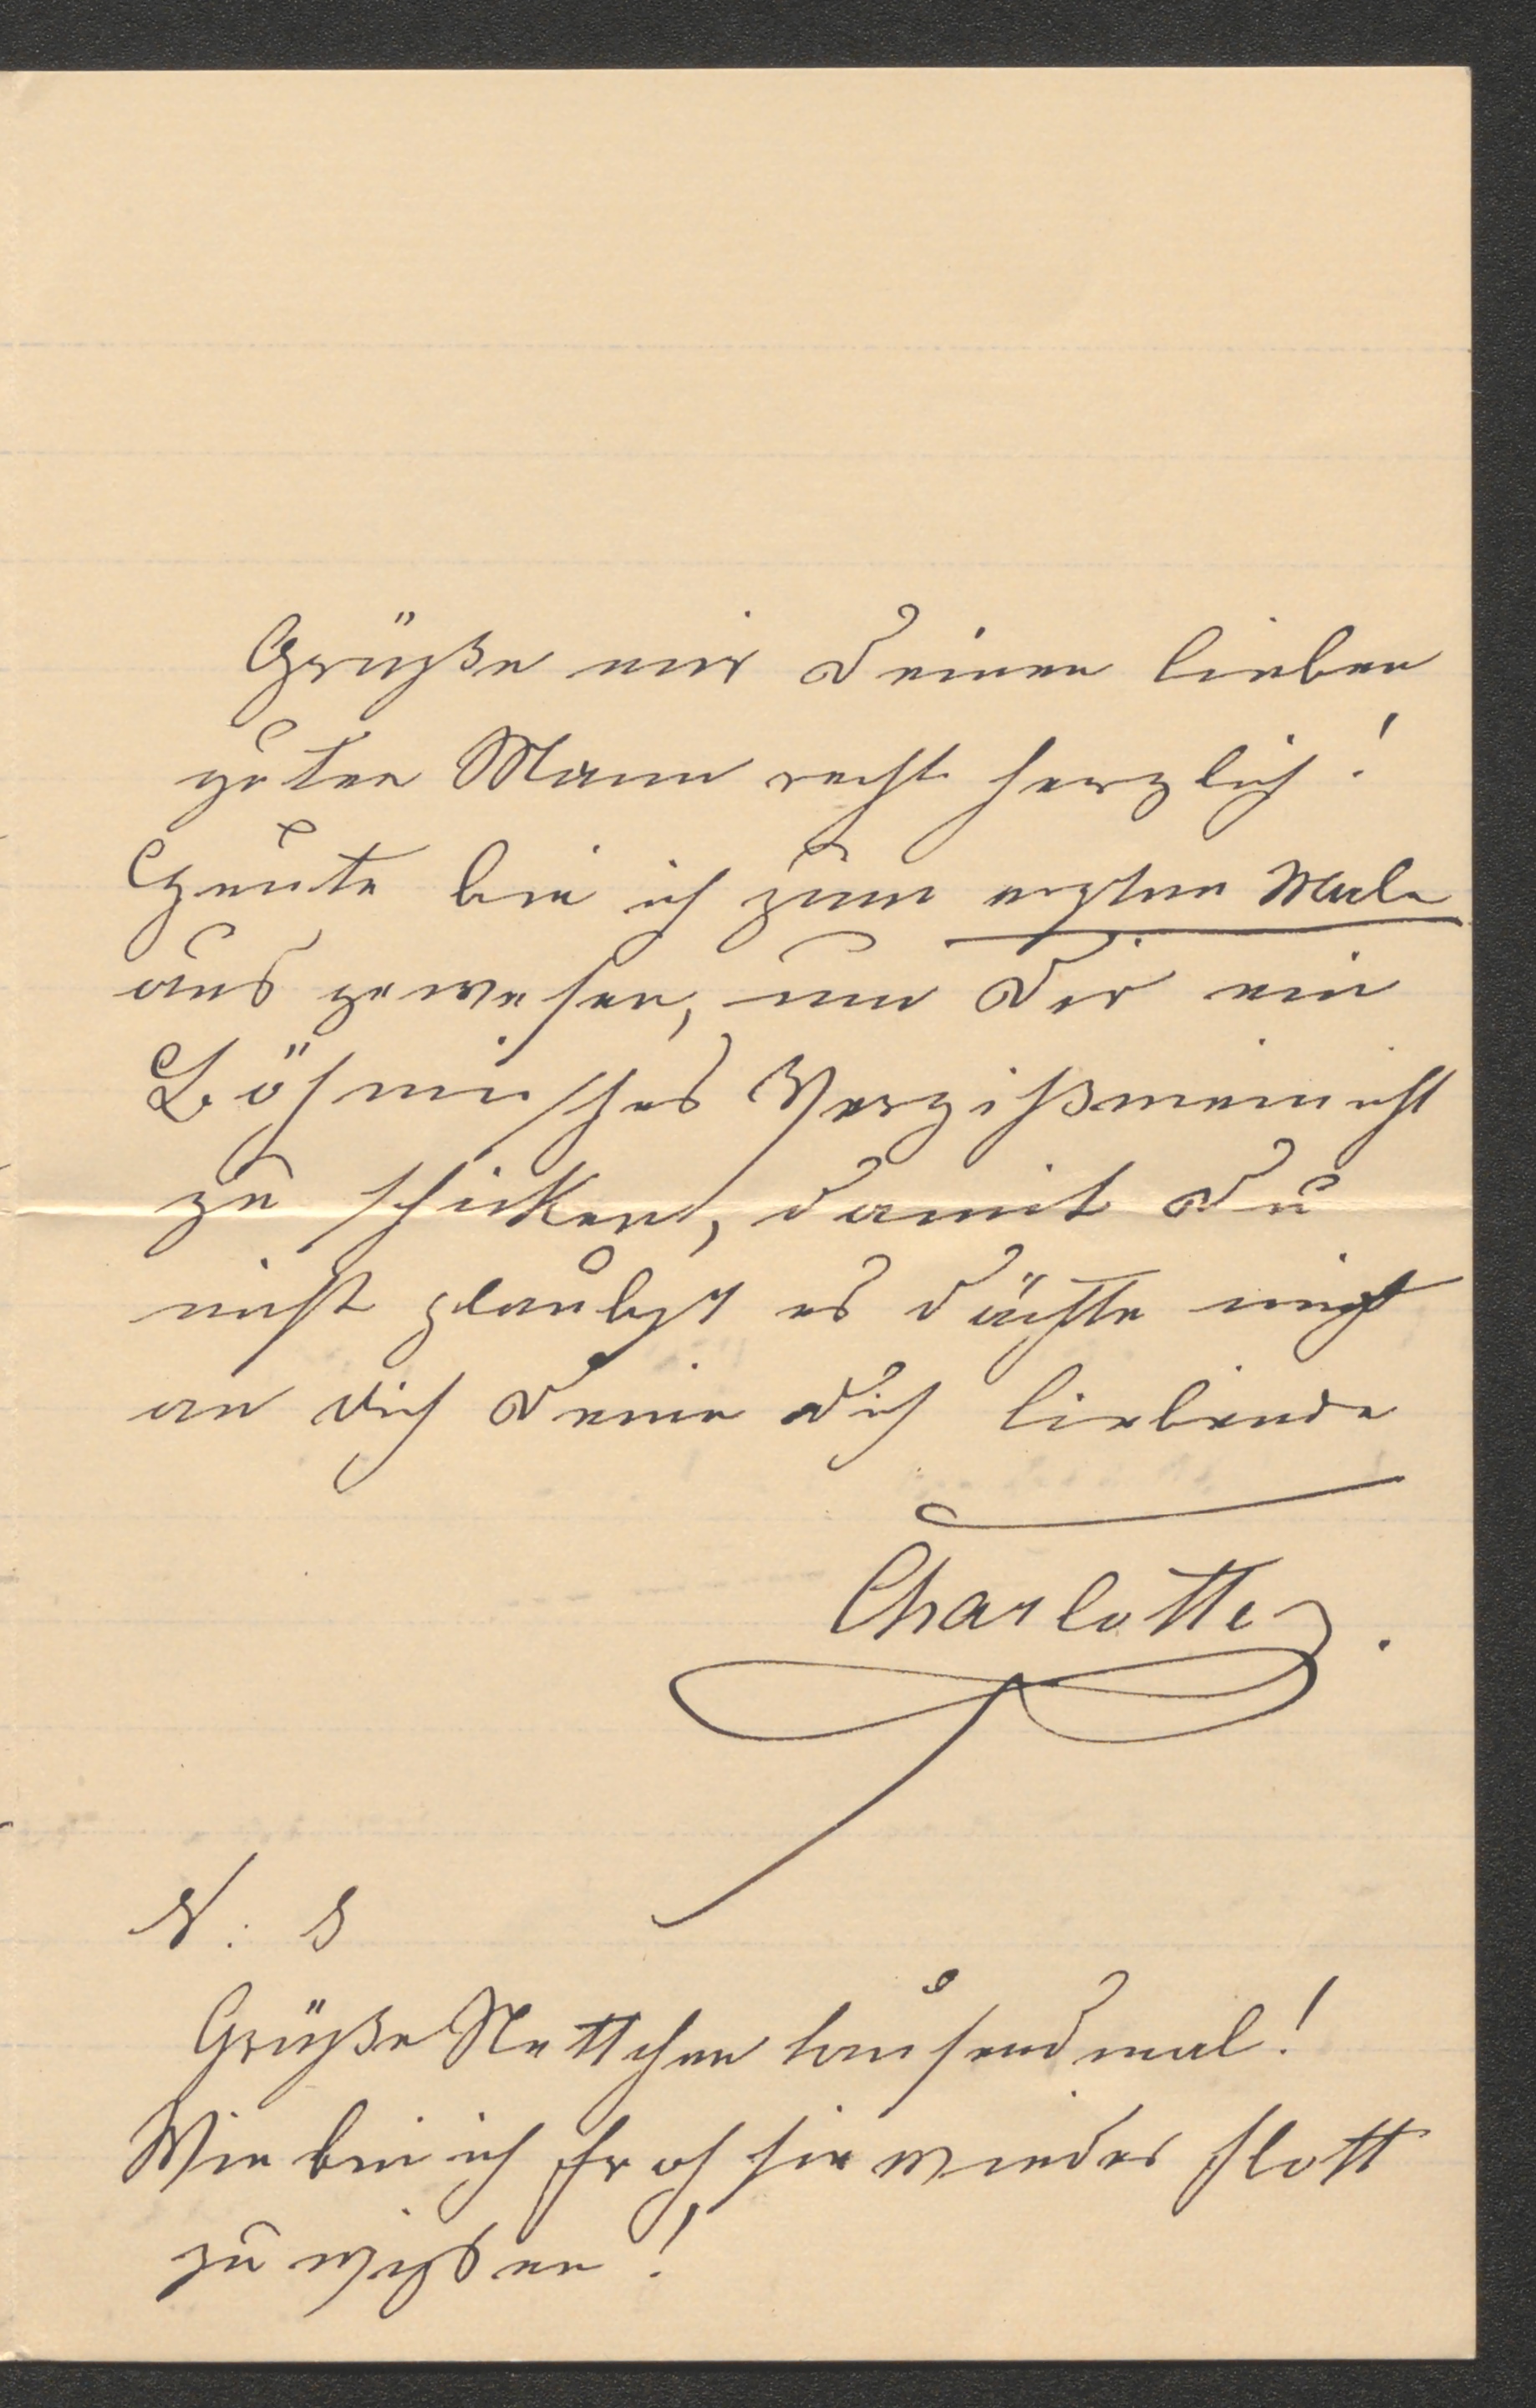 Grüße mir Deinen lieben
guten Mann recht herzlich!
Heute bin ich zum ersten Male
aus gewesen, um Dir ein
Böhmisches Vergißmeinnicht
zu schicken, damit Du
nicht glaubst es dächte nicht
an Dich Deine Dich liebende
Charlotte.
N. S
Grüße Nettchen tausendmal!
Wie bin ich froh sie wieder flott
zu wißen!